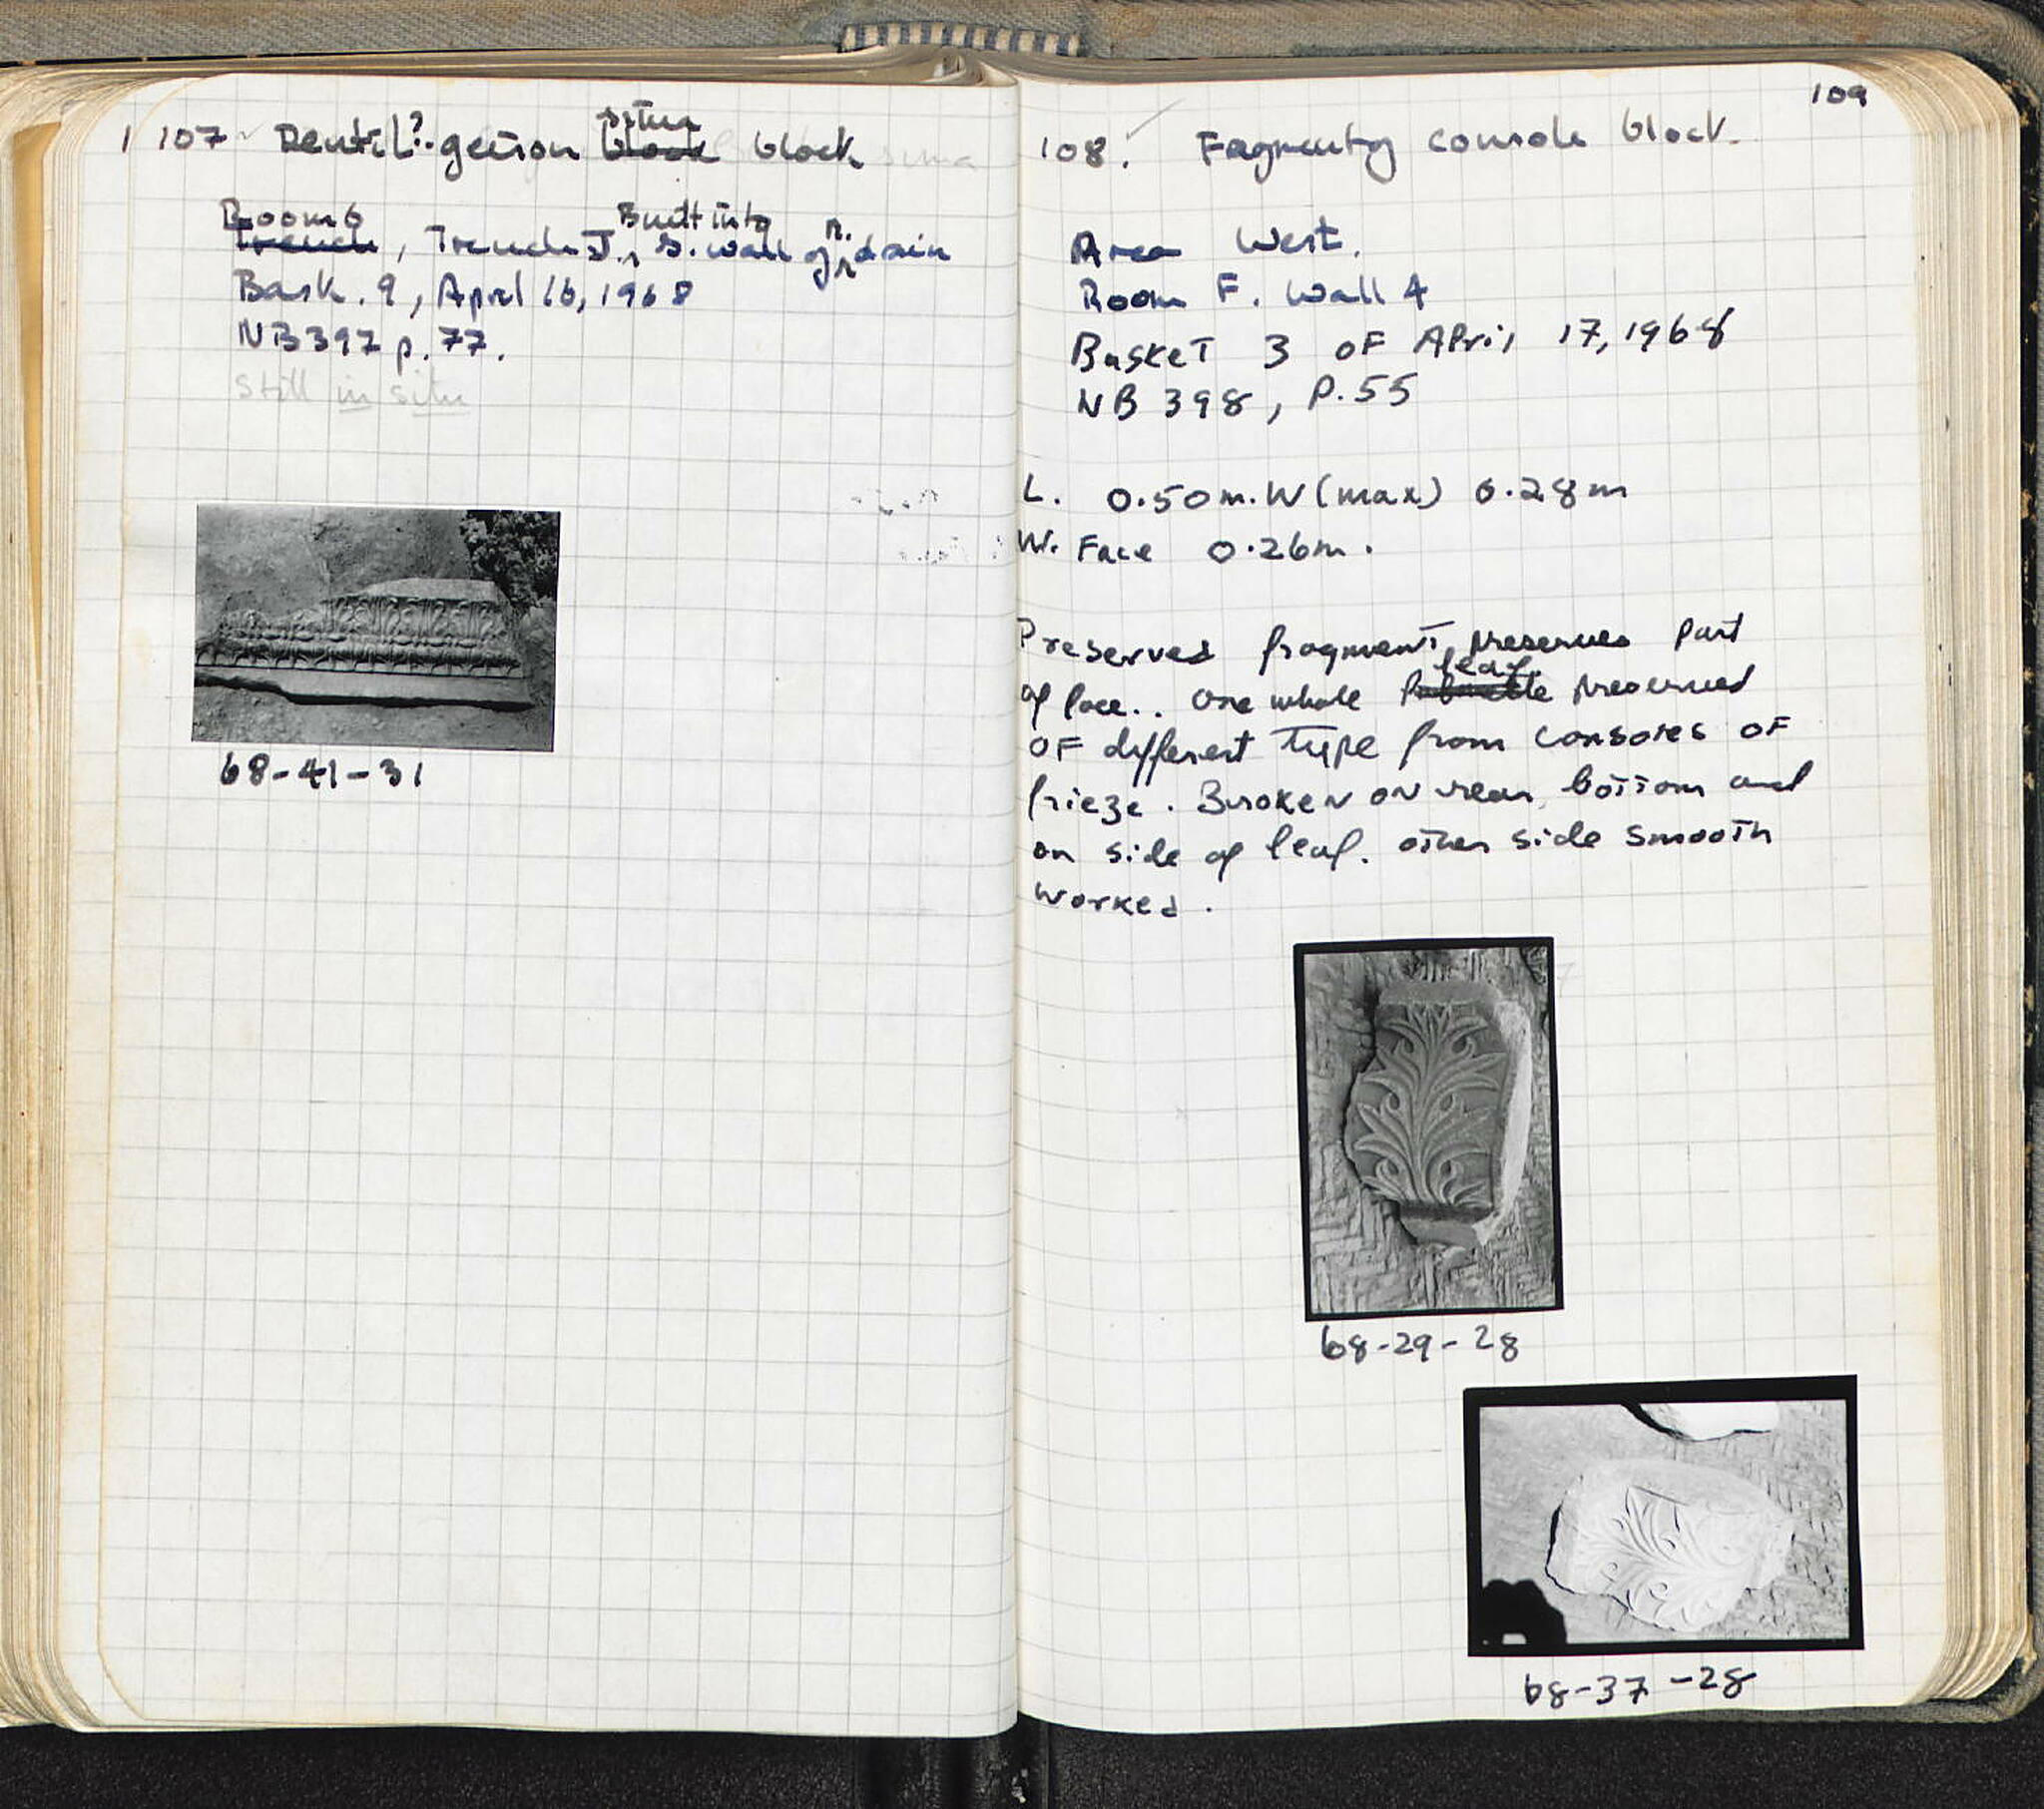 107 Dentil?-geison sima block block
Room 6
Trench, Trench J., Built into S. wall of n. drain
Bask. 9, April 16, 1968
NB397 p. 77.
Still in situ
68-41-31
109
108. Fagmenty console block.
Area West.
Room F. Wall 4
BaskeT 3 OF APril 17, 1968
NB 398, P.55
L. 0.50m. W (max) 0.28m
W. Face 0.26m.
Preserved fragment preserves part
of face.. One whole leaf preserved
OF different Type from consoles OF
frieze. Broken on rear, bottom and
on side of leaf. other side smooth
worked.
68-29-28
68-37-28